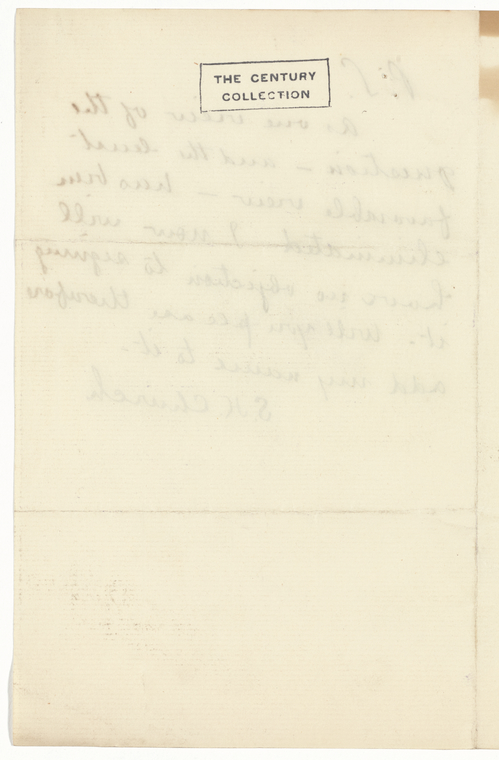 THE CENTURY
COLLECTION
P.S.
As one view of the
question – and the least
favorable view – has been
eliminated I now will
have no objection to signing
it. Will you please therefore
add my name to it.
Church